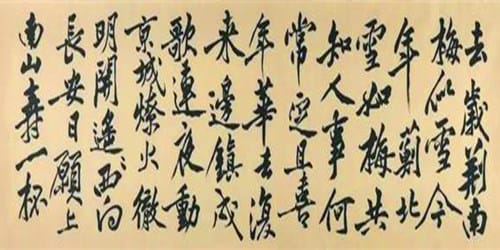 去歲荆南
梅似雪今
年薊北
雪如梅共
知人事何
常定且喜
年華去復
来邊鎮戍
歌連夜動
京城燎火徹
明開遥〻西向
長安日願上
南山壽一杯